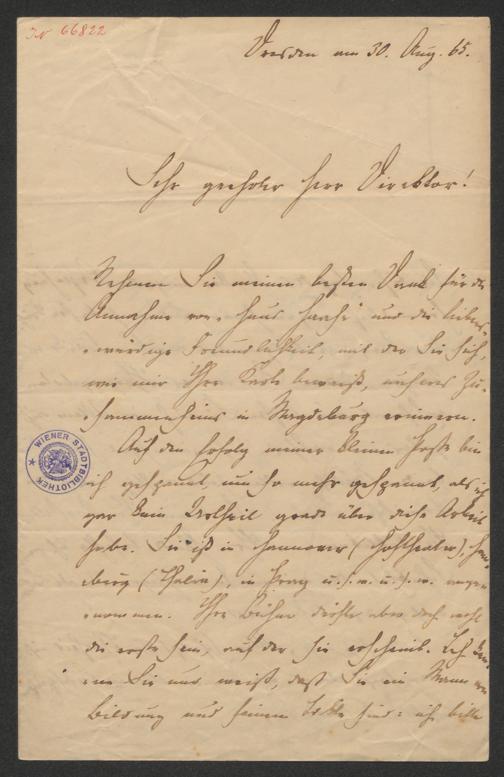 JN 66822
Dresden am 30. Aug. 65.
Sehr geehrter Herr Direktor!
Nehmen Sie meinen besten Dank für die
Annahme von „Hans Haase“ und die liebens-
-würdige Freundlichkeit, mit der Sie sich,
wie mir Ihre Karte beweist, unseres Zu-
-sammenseins in Magdeburg erinnern.
Auf den Erfolg meiner kleinen Posse bin
ich gespannt, um so mehr gespannt, als ich
gar kein Urtheil grade über diese Arbeit
habe. Sie ist in Hannover (Hoftheater), Ham-
-burg (Thalia), in Prag u. s. w. u. s. w. ange-
-nommen. Ihre Bühne dürfte aber doch wohl
die erste sein, auf der sie erscheint. Ich
Sie und weiß, daß Sie ein Mann von
Bildung und feinem sind: ich bitte
WIENER STADTBIBLIOTHEK